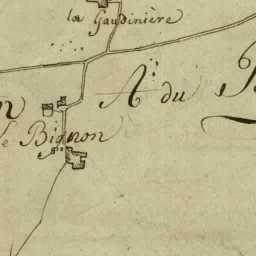 la Gaudinière
A du
le Bignon